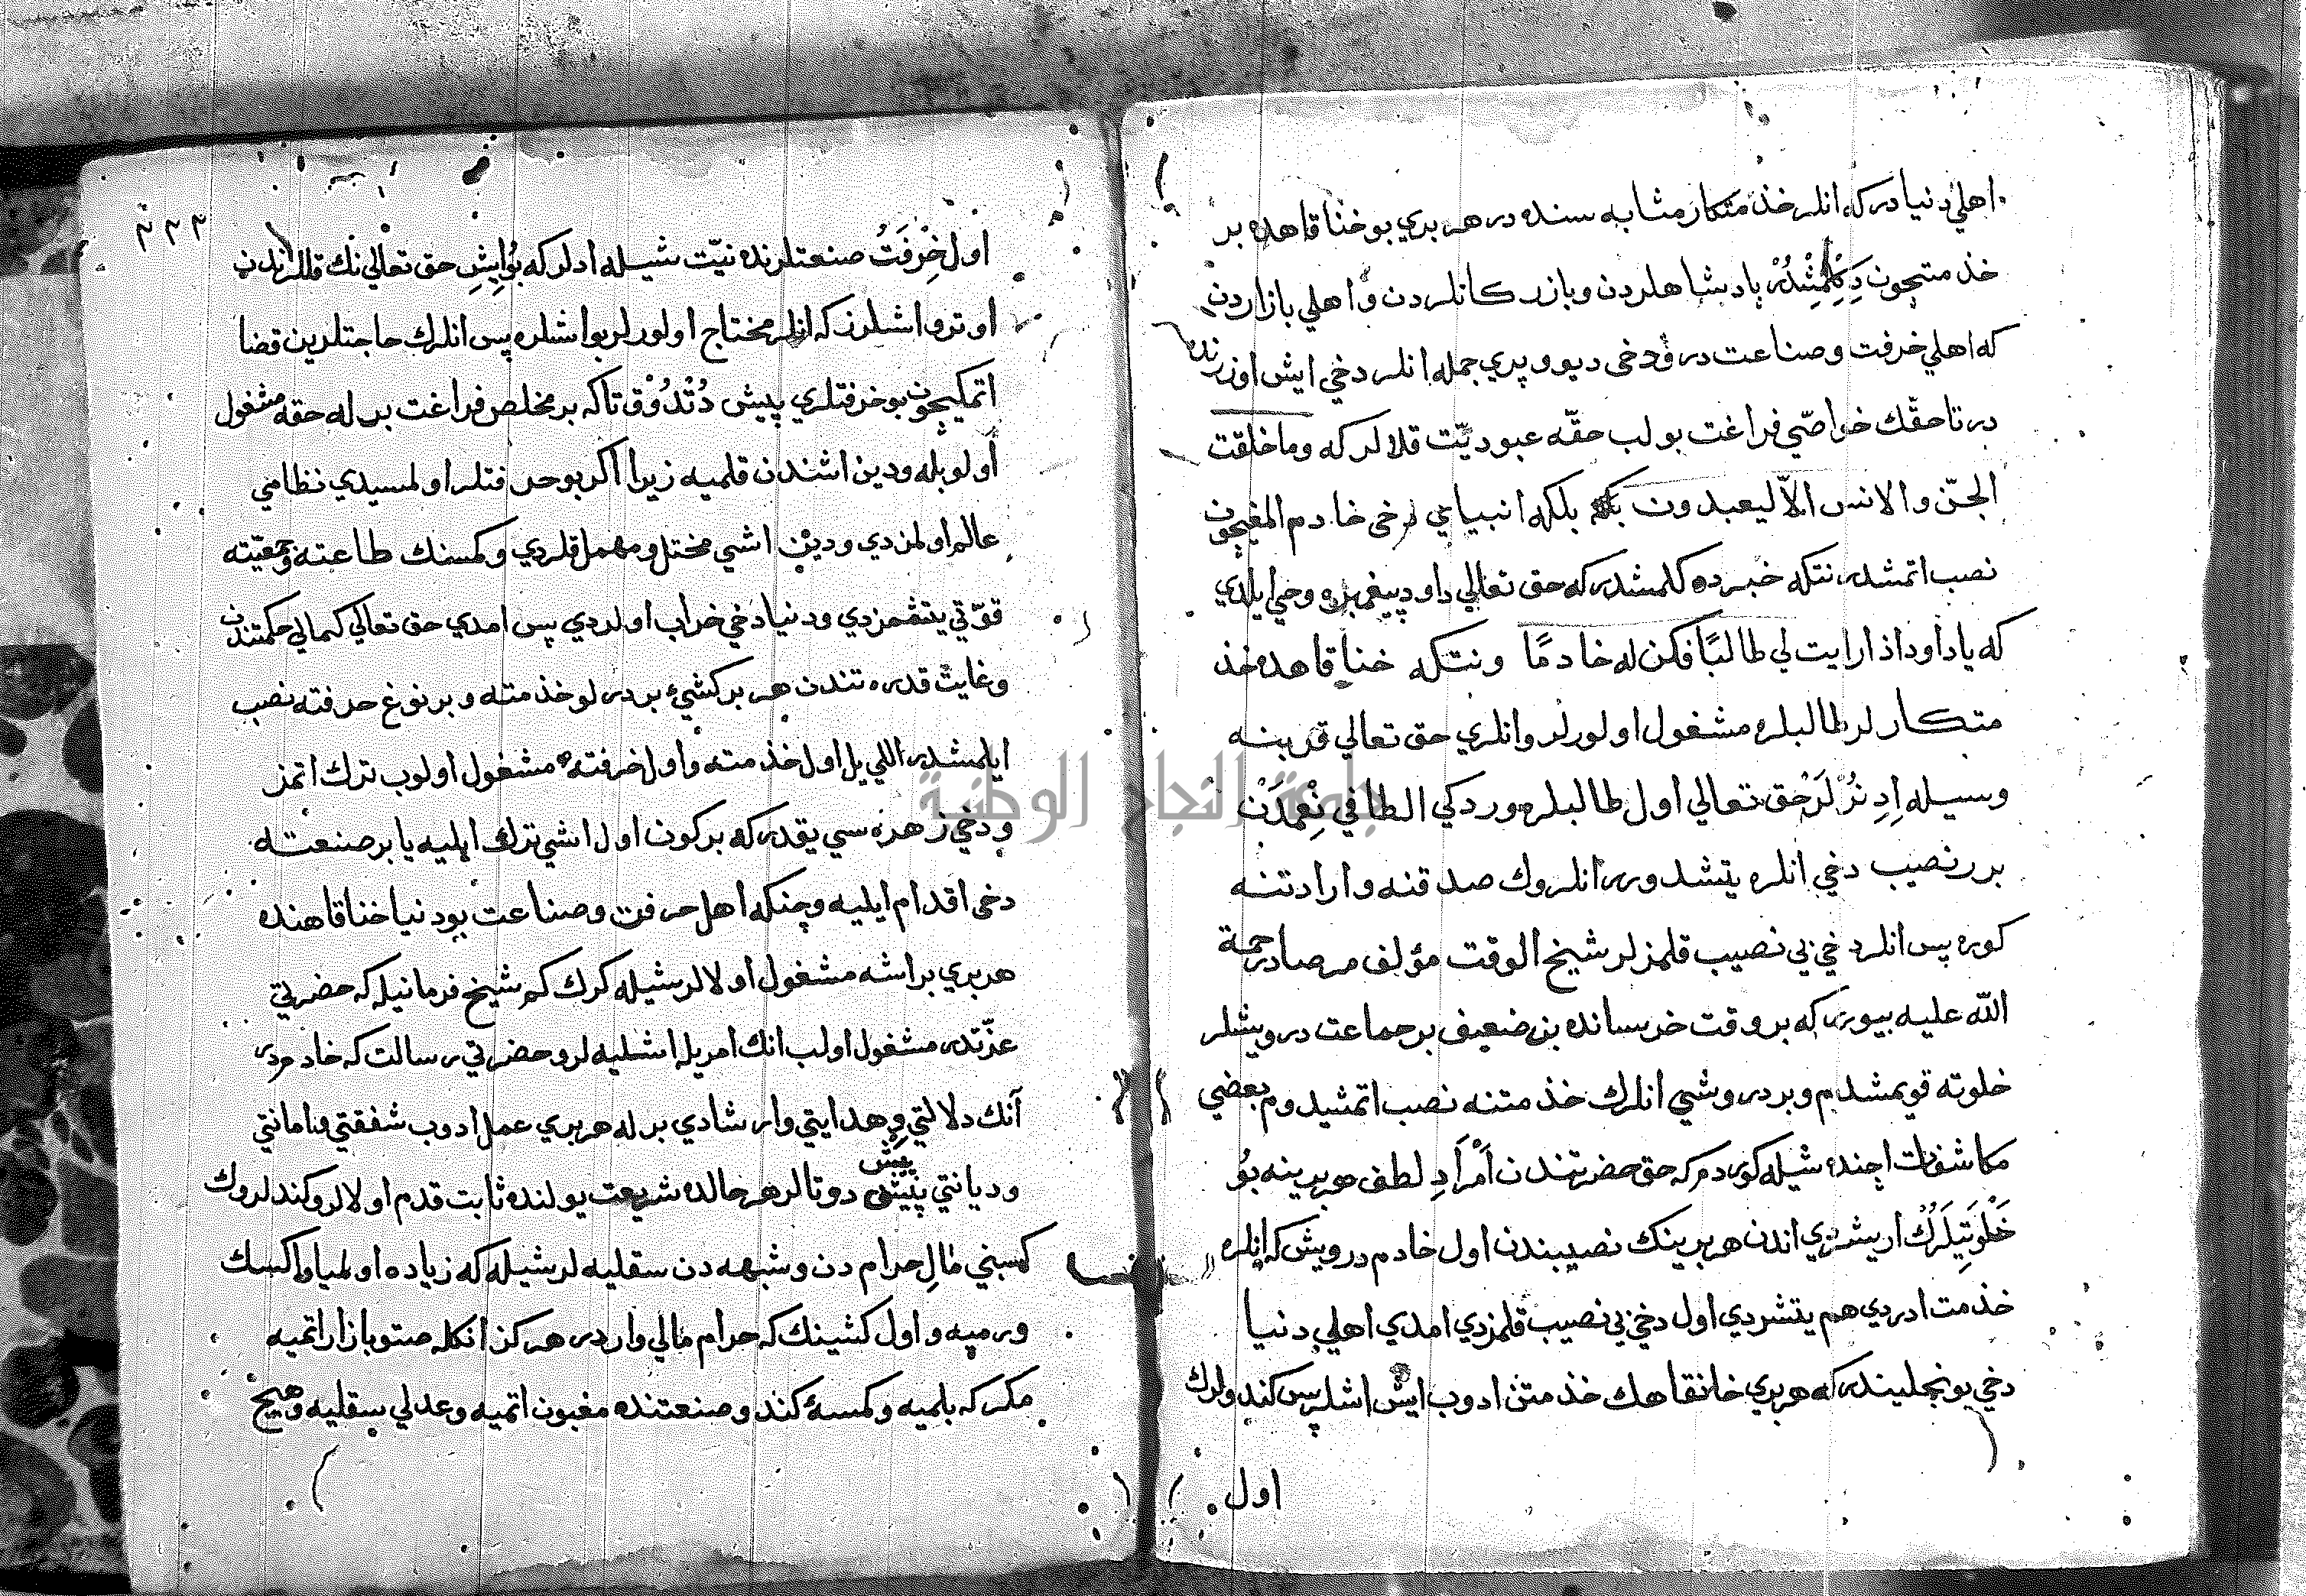 اهلي دنيا در كه انلر خذمتكار مثابه سنده در هر بري بو خناقاهده بر
خذمتچون دكلمشدر پادشاهلردن و بازركانلردن و اهلي بازاردن
كه اهلي خرفت و صناعت در ودخى ديو و پري جمله انلر دخي ايش اوزرنده
در تا حقك خواصّي فراغت بولب حقّه عبوديّت قلالر كه وما خلقت
الجنّ والانس الاّ ليعبدون بلكه انبياي دخى خادم المغيچون
نصب اتمشدر نتكه خبرده كلمشدر كه حق تعالي داود پيغمبره وحي ايلدي
كه يا داود اذا رايت لي طالبًا فكن له خادمًا ونتكه خناقاهده خذ
متكارلر طالبلره مشغول اولورلر وانلري حق تعالي قربينه
وسيله اِدِنُرْلَرْ حق تعالي اول طالبلره وردكي الطافي نِعْمَدَنْ
بر نصيب دخي انلره يتشدورر انلروك صدقنه وارادتنه
كوره پس انلر دخي بي نصيب قلمزلر شيخ الوقت مؤلف مرصاد رحمة
الله عليه بيورر كه بر وقت خرسانده بن ضعيف بر جماعت درويشلر
خلوته قويمشدم و بر درويشي انلرك خذمتنه نصب اتمشيدوم بعضي
مكاشفات اچنده شيله كوردم كه حق حضرتندن اَمْرَادِ لطف هر برينه بُو
خَلْوَتِيلَرُكْ اريشردي اندن هر برينك نصيبندن اول خادم درويش كه انلره
خذمت ادردي هم يتشردي اول دخي بي نصيب قلمزدي امدي اهلي دنيا
دخي بونجليندر كه هر بري خانقاهك خذمتن ادوب ايش اشلر پس كندولرك
اول
٣٣٣
اول خِرْفَتْ صنعتلرنده نيّت شيله ادلر كه بُو ايشِ حق تعالي نك قللرندن
اوترو اشلرز كه انلر محتاج اولورلر بو اشلره پس انلرك حاجتلرين قضا
اتمكيچون بو خرفتلري پيش دُتْدُوْق تا كه بر مخلص فراغت برله حقه مشغول
اولوبله ودين اشندن قلميه زيرا اكر بو حرفتلر اولمسيدي نظامي
عالم اولمزدي ودين اشي مختل ومهمل قلردي وكمسنك طاعته وجمعيّته
قوّتي يتشمزدي ودنيا دخي خراب اولردي پس امدي حق تعالي كمالي حكمتندن
وغايث قدرتندن هر بر كشيئ بر درلو خذمته و بر نوع حرفته نصب
ايلمشدر اللي يل اول خذمته واول خرفته مشغول اولوب ترك اتمز
ودخي زهره سي يقدر كه بر كون اول اشي ترك ايليه يا بر صنعته
دخى اقدام ايليه وچنكه اهل حرفت وصناعت بو دنيا خناقاهنده
هر بري بر اشه مشغول اولالر شيله كرك كم شيخ فرمانيله كه حضرتي
عزّتدر مشغول اولب انك امريله اشليه لر و حضرتي رسالت كه خادمدر
آنك دلالتي وهدايتي وارشادي برله هر بري عمل ادوب شفقتي و امانتي
ودیانتي پيش دوتالر هر حالده شريعت يولنده ثابت قدم اولالر وكندلروك
كسبني مال حرام دن وشبهه دن سقليه لر شيله كه زياده اولميا واكسك
ورميه و اول كشينك كه حرام مالي واردر هركز انكله صتو بازار اتميه
مكر كه بلميه وكمسئ كند وصنعتنده مغبون اتميه وعدلي سقليه وهيچ
جامعة النجاح الوطنية